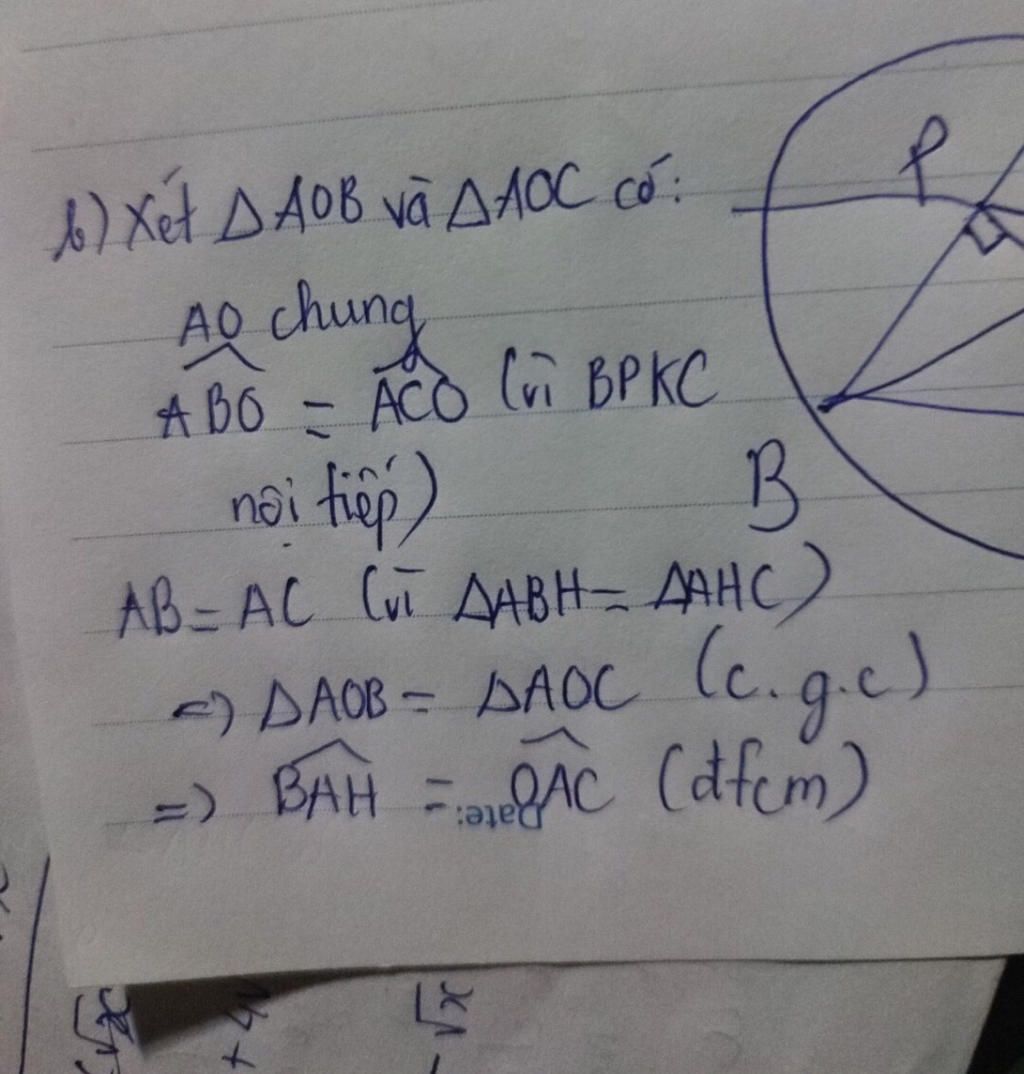 b) Xét ΔAOB và ΔAOC có:
P
AO chung
ABO = ACO (vì BPKC
nội tiếp)
B
AB = AC (vì ΔABH = ΔAHC)
=> ΔAOB = ΔAOC (c.g.c)
=> BAH = OAC (đfcm)
Date:
√x
+ 4
- √x